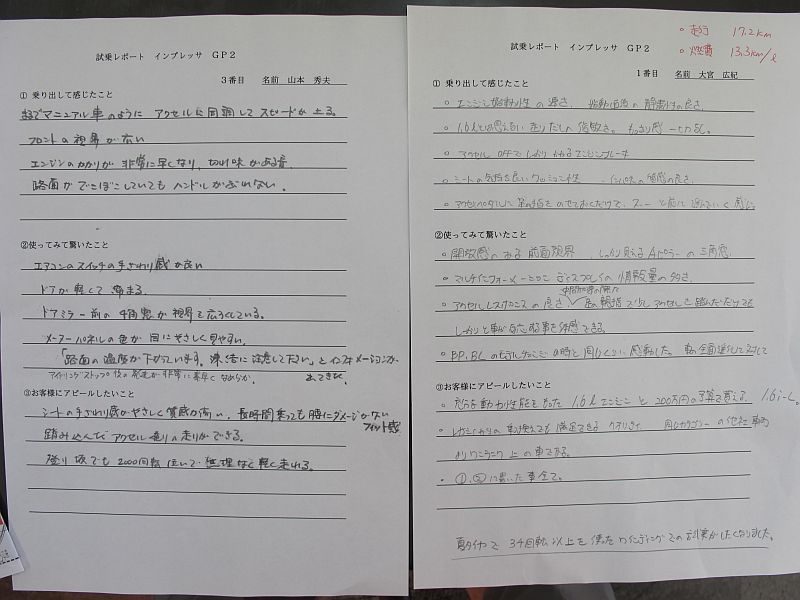 試乗レポート インプレッサ GP2
3番目 名前 山本 秀夫
① 乗り出して感じたこと
まるでマニュアル車のように アクセルに同調して スピードが上る。
フロントの視界が広い
エンジンのかかりが非常に早くなり、切れ味がある音。
路面がでこぼこしていてもハンドルがぶれない。
②使ってみて驚いたこと
エアコンのスイッチの手ざわり感が良い
ドアが軽くて閉まる。
ドアミラー前の三角窓が視界を広くしている。
メーターパネルの色が目にやさしく見やすい。
「路面の温度が下がっています。凍結に注意して下さい」とインフォメーションが
アイドリングストップ後の発進が非常に素早くなめらか。 出てきた。
③お客様にアピールしたいこと
シートの手ざわり感がやさしく質感が高い。長時間乗っても腰にダメージがない
フィット感
踏み込んでアクセル通りの走りができる。
登り坂でも2000回転位いで無理なく軽く走れる。
○ 走行 17.2km
○ 燃費 13.3km/ℓ
試乗レポート インプレッサ GP2
1番目 名前 大宮 広紀
① 乗り出して感じたこと
○ エンジン始動性の速さ、始動直後の静粛性の良さ。
○ 1.6Lとは思えない走りだしの俊敏さ。もっさり感一切なし。
○ アクセルOFFでしっかりかかるエンジンブレーキ
○ シートの気持ち良いクッション性 の質感の良さ。
○ アクセルペダルに足の指をのせておくだけで、スーと前に進んでいく感じ。
②使ってみて驚いたこと
・ 開放感のある前面視界 しっかり見えるAピラーの三角窓
・ マルチインフォメーションディスプレイの情報量の多さ
・ アクセルレスポンスの良さ 足の親指で少しアクセルを踏んだだけでも
しっかりと車が反応する事を体感できる。
・ BP、BLのモデルチェンジの時と同じくらい感動した。車の全面進化に対して
③お客様にアピールしたいこと
・ 動力性能をもった1.6Lエンジンを200万円の予算で買える。1.6i-L。
・ レガシィからの乗換えでも満足できるクオリティ 同じカテゴリーの他社車両
より ワンランク上の車である。
・ ①、②に書いた事全て。
夏タイヤで3千回転以上を使ったワインディングでの試乗がしたくなりました。